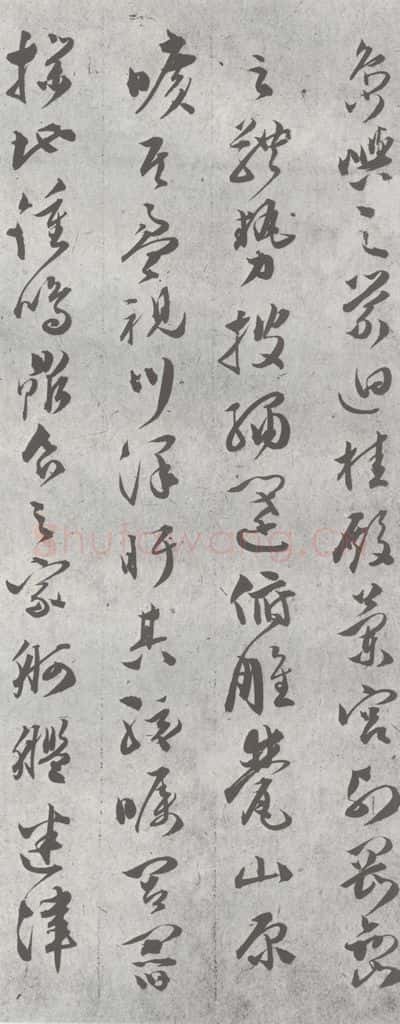 島嶼之縈迴桂殿蘭宮列岡巒
之體勢披繡闥俯雕甍山原
曠其盈視川澤盱其駭矚閭閻
撲地鍾鳴鼎食之家舸艦迷津
Shufawang.cn